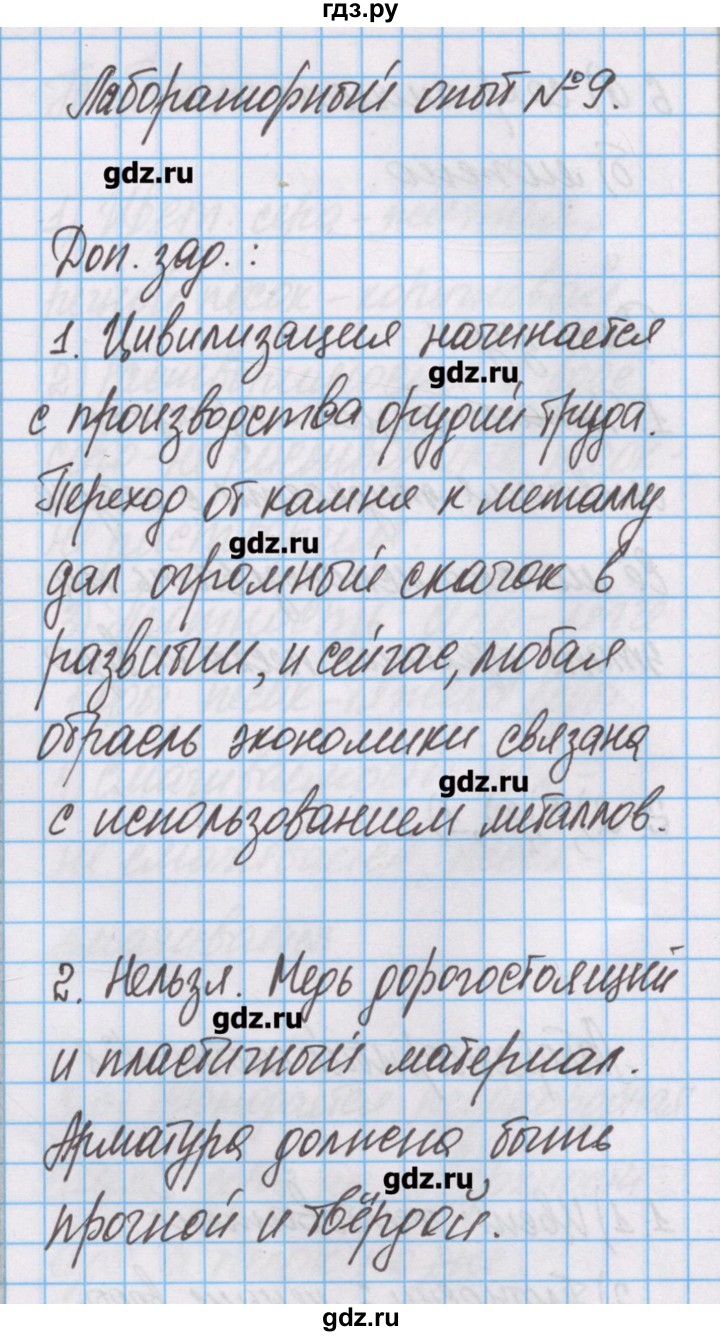 гдз.ру
Лабораторный опыт №9.
gdz.ru
Доп. зад.:
1. Цивилизация начинается
gdz.ru
с производства орудий труда.
Переход от камня к металлу
gdz.ru
дал огромный скачок в
развитии, и сейчас, любая
отрасль экономики связана
gdz.ru
с использованием металлов.
2. Нельзя. Медь дорогостоящий
gdz.ru
и пластичный материал.
Арматура должна быть
gdz.ru
прочной и твёрдой.
gdz.ru